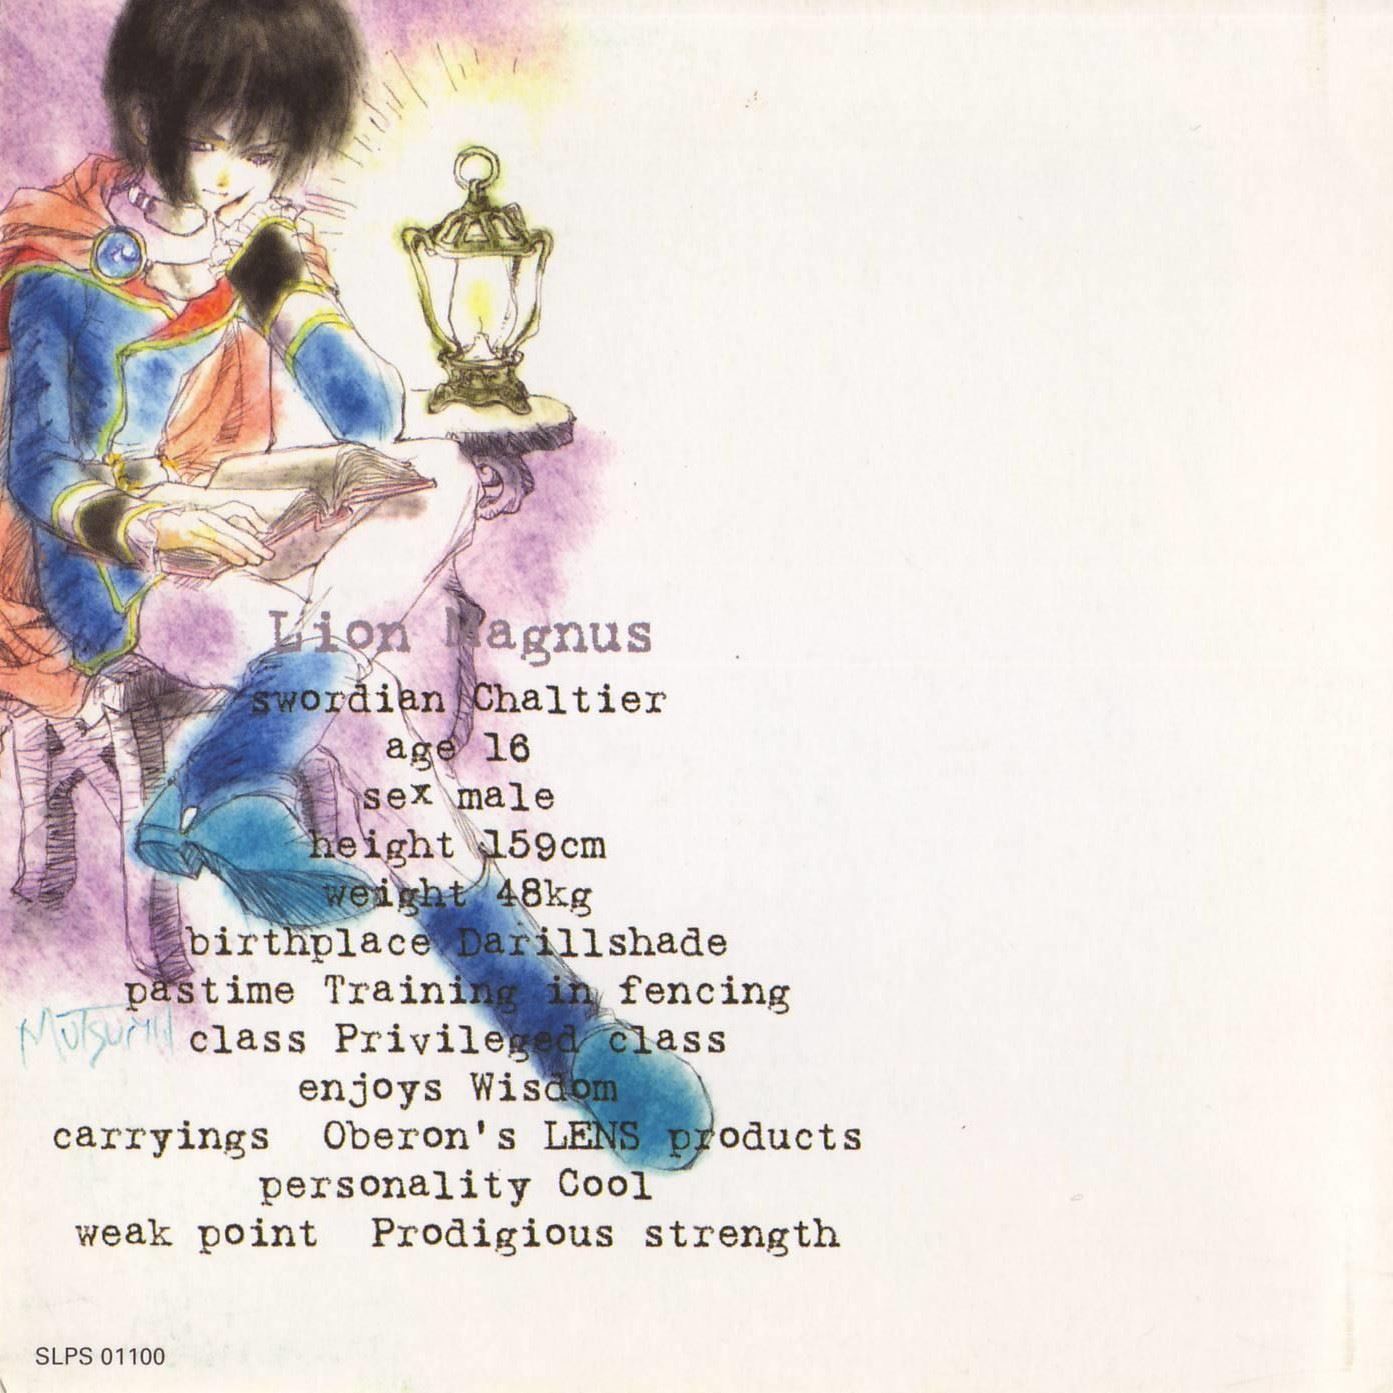 Lion Magnus
swordian Chaltier
age 16
sex male
height 159cm
weight 48kg
birthplace Darillshade
pastime Training in fencing
class Privileged class
enjoys Wisdom
carryings Oberon's LENS products
personality Cool
weak point Prodigious strength
SLPS 01100